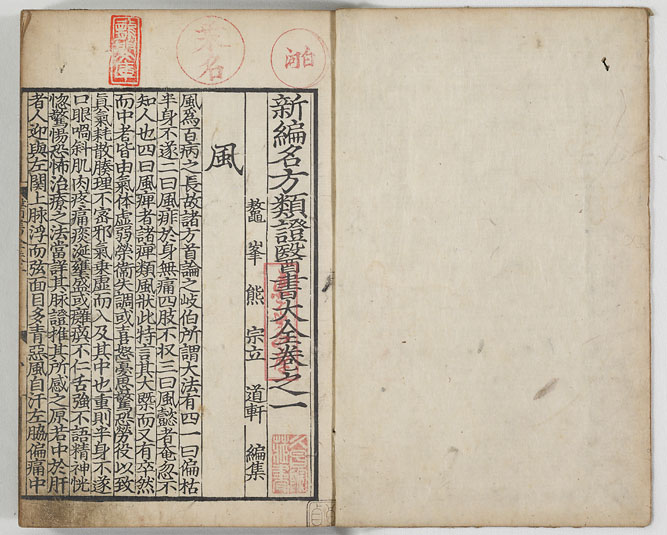 新編名方類證醫書大全卷之一
鰲峯熊宗立道軒編集
風
風爲百病之長故諸方首論之岐伯所謂大法有四一曰偏枯
半身不遂二曰風痱於身無痛四肢不収三曰風懿者奄忽不
知人也四曰風痺者諸痺類風狀此特言其大槩而又有卒然
而中者皆由氣体虛弱榮衞失調或喜怒憂思驚恐勞役以致
眞氣耗散腠理不宻邪氣乘虛而入及其中也重則半身不遂
口眼喎斜肌肉疼痛痰涎壅盛或癱瘓不仁舌強不語精神恍
惚驚惕恐怖治療之法當詳其脉證推其所感之原若中於肝
者人迎與左関上脉浮而弦面目多青惡風自汗左脇偏痛中
桒名
白河